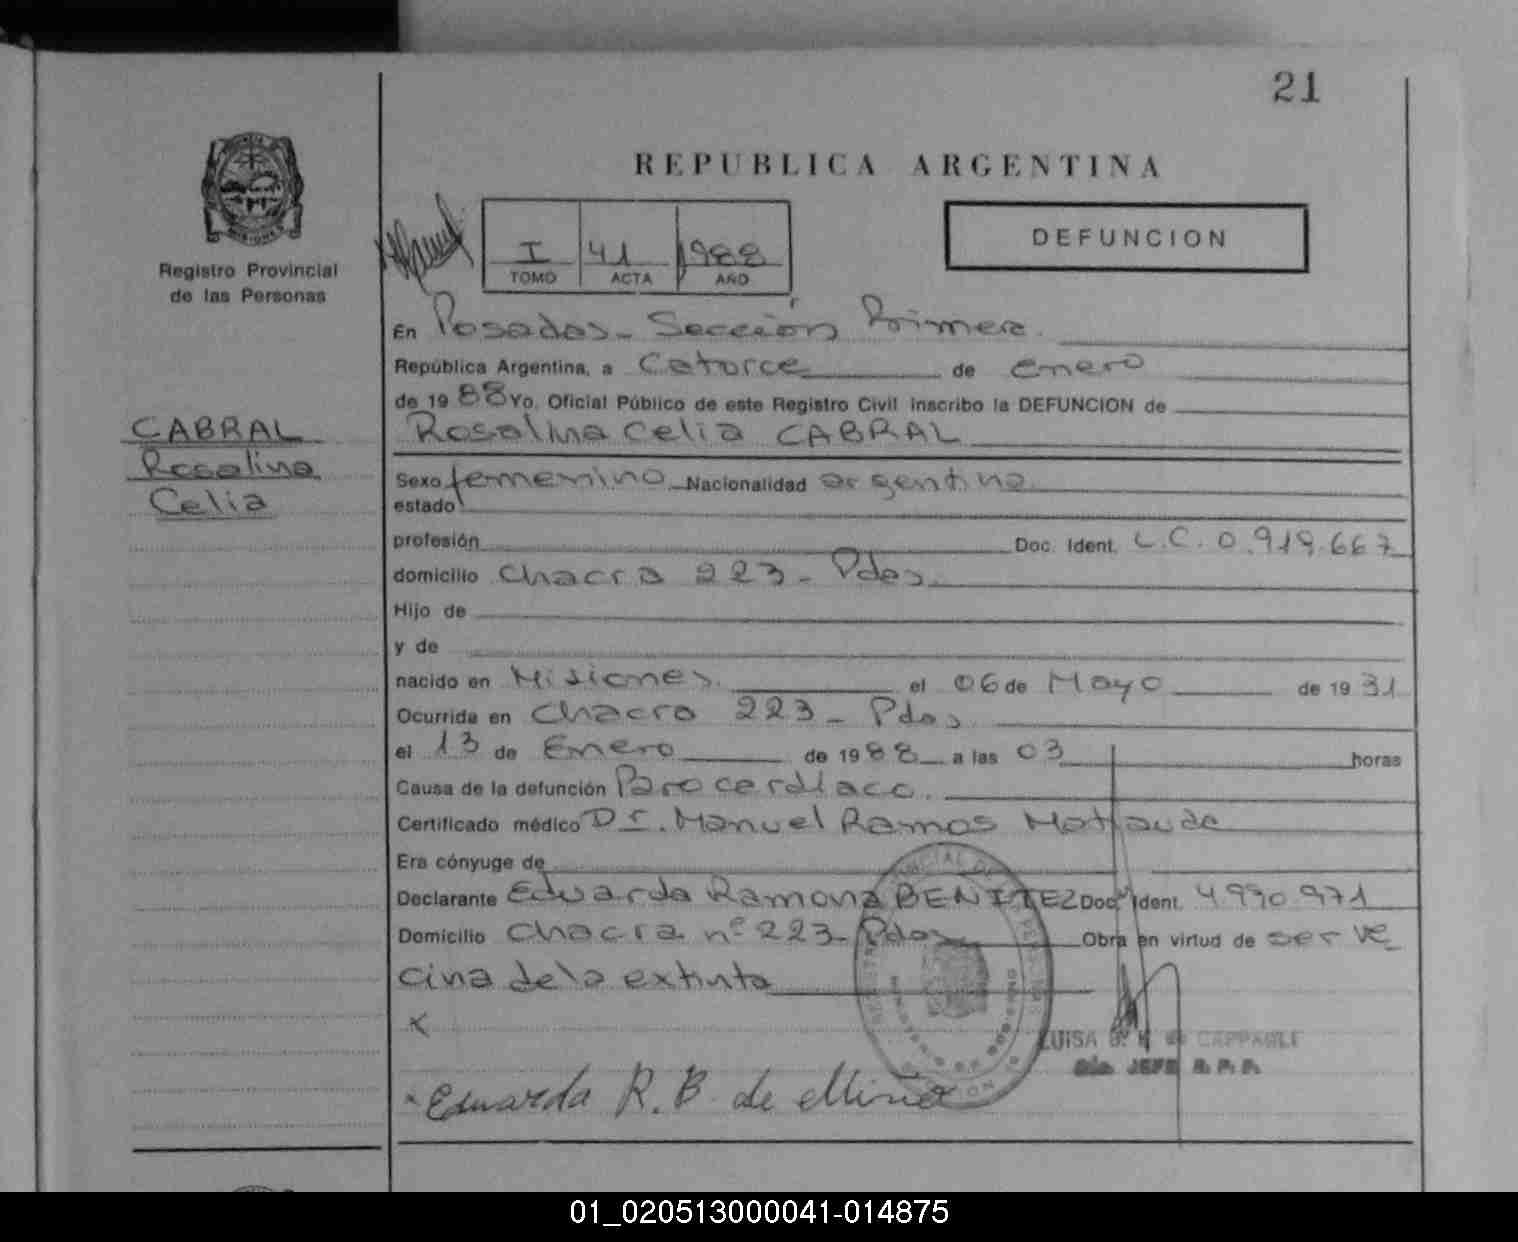 21
REPUBLICA ARGENTINA
Registro Provincial
de las Personas
I 41 1988
TOMO ACTA AÑO
DEFUNCION
En Posadas - Sección Primera
República Argentina, a Catorce de enero
de 1988 Yo, Oficial Público de este Registro Civil inscribo la DEFUNCION de
Rosalina Celia CABRAL
CABRAL
Rosalina
Celia
Sexo femenino Nacionalidad argentina
estado
profesión Doc. Ident. L.C. 0.919.667
domicilio Chacra 223 - Pdas
Hijo de
y de
nacido en Misiones el 06 de Mayo de 1931
Ocurrida en Chacra 223 - Pdas
el 13 de Enero de 1988 a las 03 horas
Causa de la defunción Paro cardíaco.
Certificado médico Dr. Manuel Ramos
Era cónyuge de
Declarante Eduarda Ramona BENITEZ Doc. Ident. 4.990.971
Domicilio Chacra nº 223 - Pdas Obra en virtud de ser ve
cina de la extinta
x
Eduarda R. B. de Miño
LUISA
JEFE R. P. P.
01_020513000041-014875